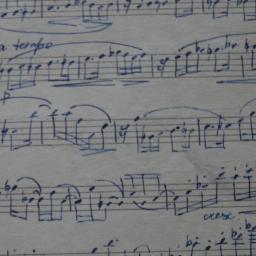 a tempo
p
cresc